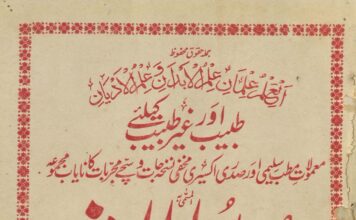 جملہ حقوق محفوظ
العلم علمان علم الابدان و علم الادیان
طبیب اور غیر طبیب کیلئے
معمولات مطب سلیمی اور صدری اکسیری مخفی نسخہ جات و سچے مجربات کا نایاب مجموعہ